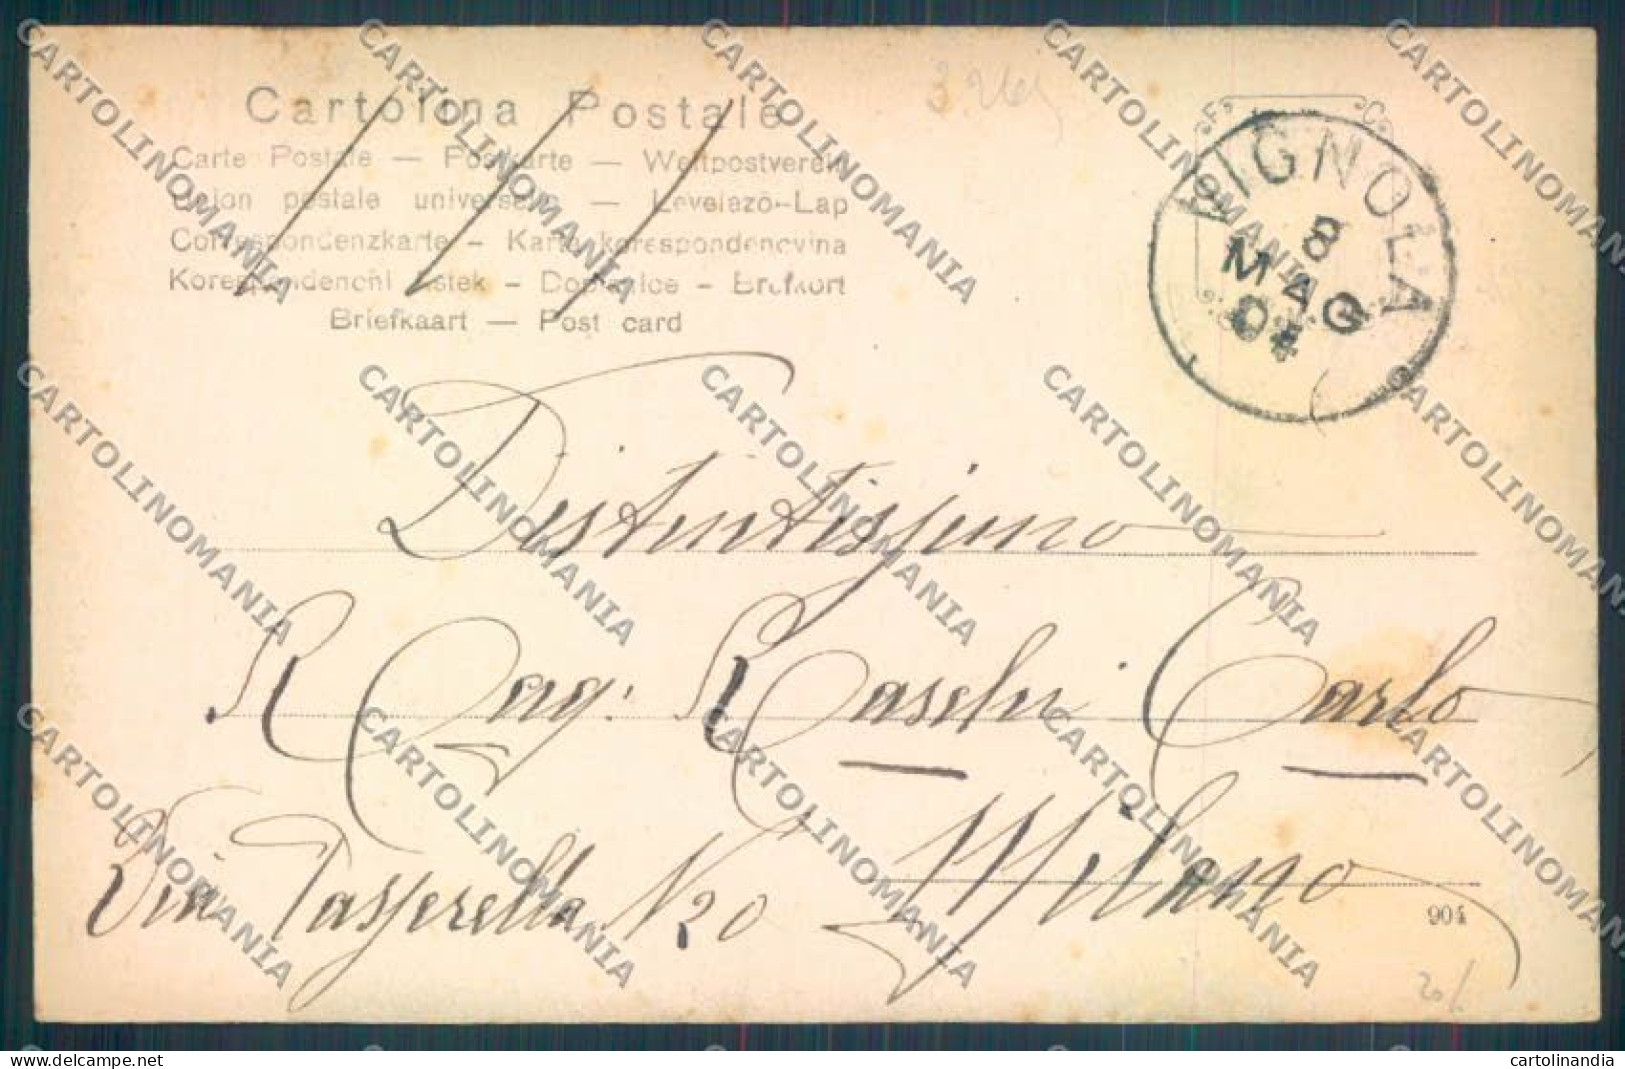 Cartolina Postale
Carte Postale — Postkarte — Weltpostverein
Union postale universelle — Levelezö-Lap
Correspondenzkarte - Karta korespondencyina
Korespondenční lístek - Dopisnice - Brefkort
Briefkaart — Post card
VIGNOLA
8
MAG
04
Distintissimo
Rag: Raschi Carlo
Milano
Via Passerella N 20
904
CARTOLINOMANIA
delcampe.net
cartolinandia